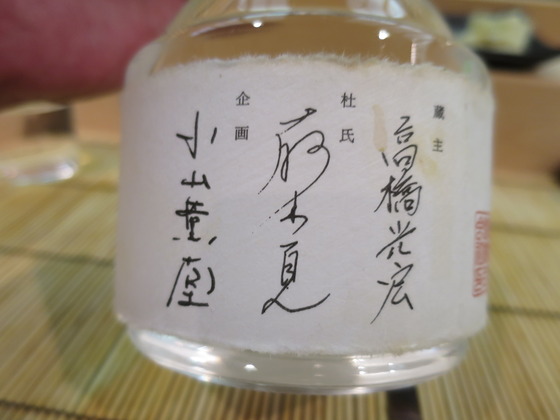 蔵主
高橋光宏
杜氏
企画
小山薫堂